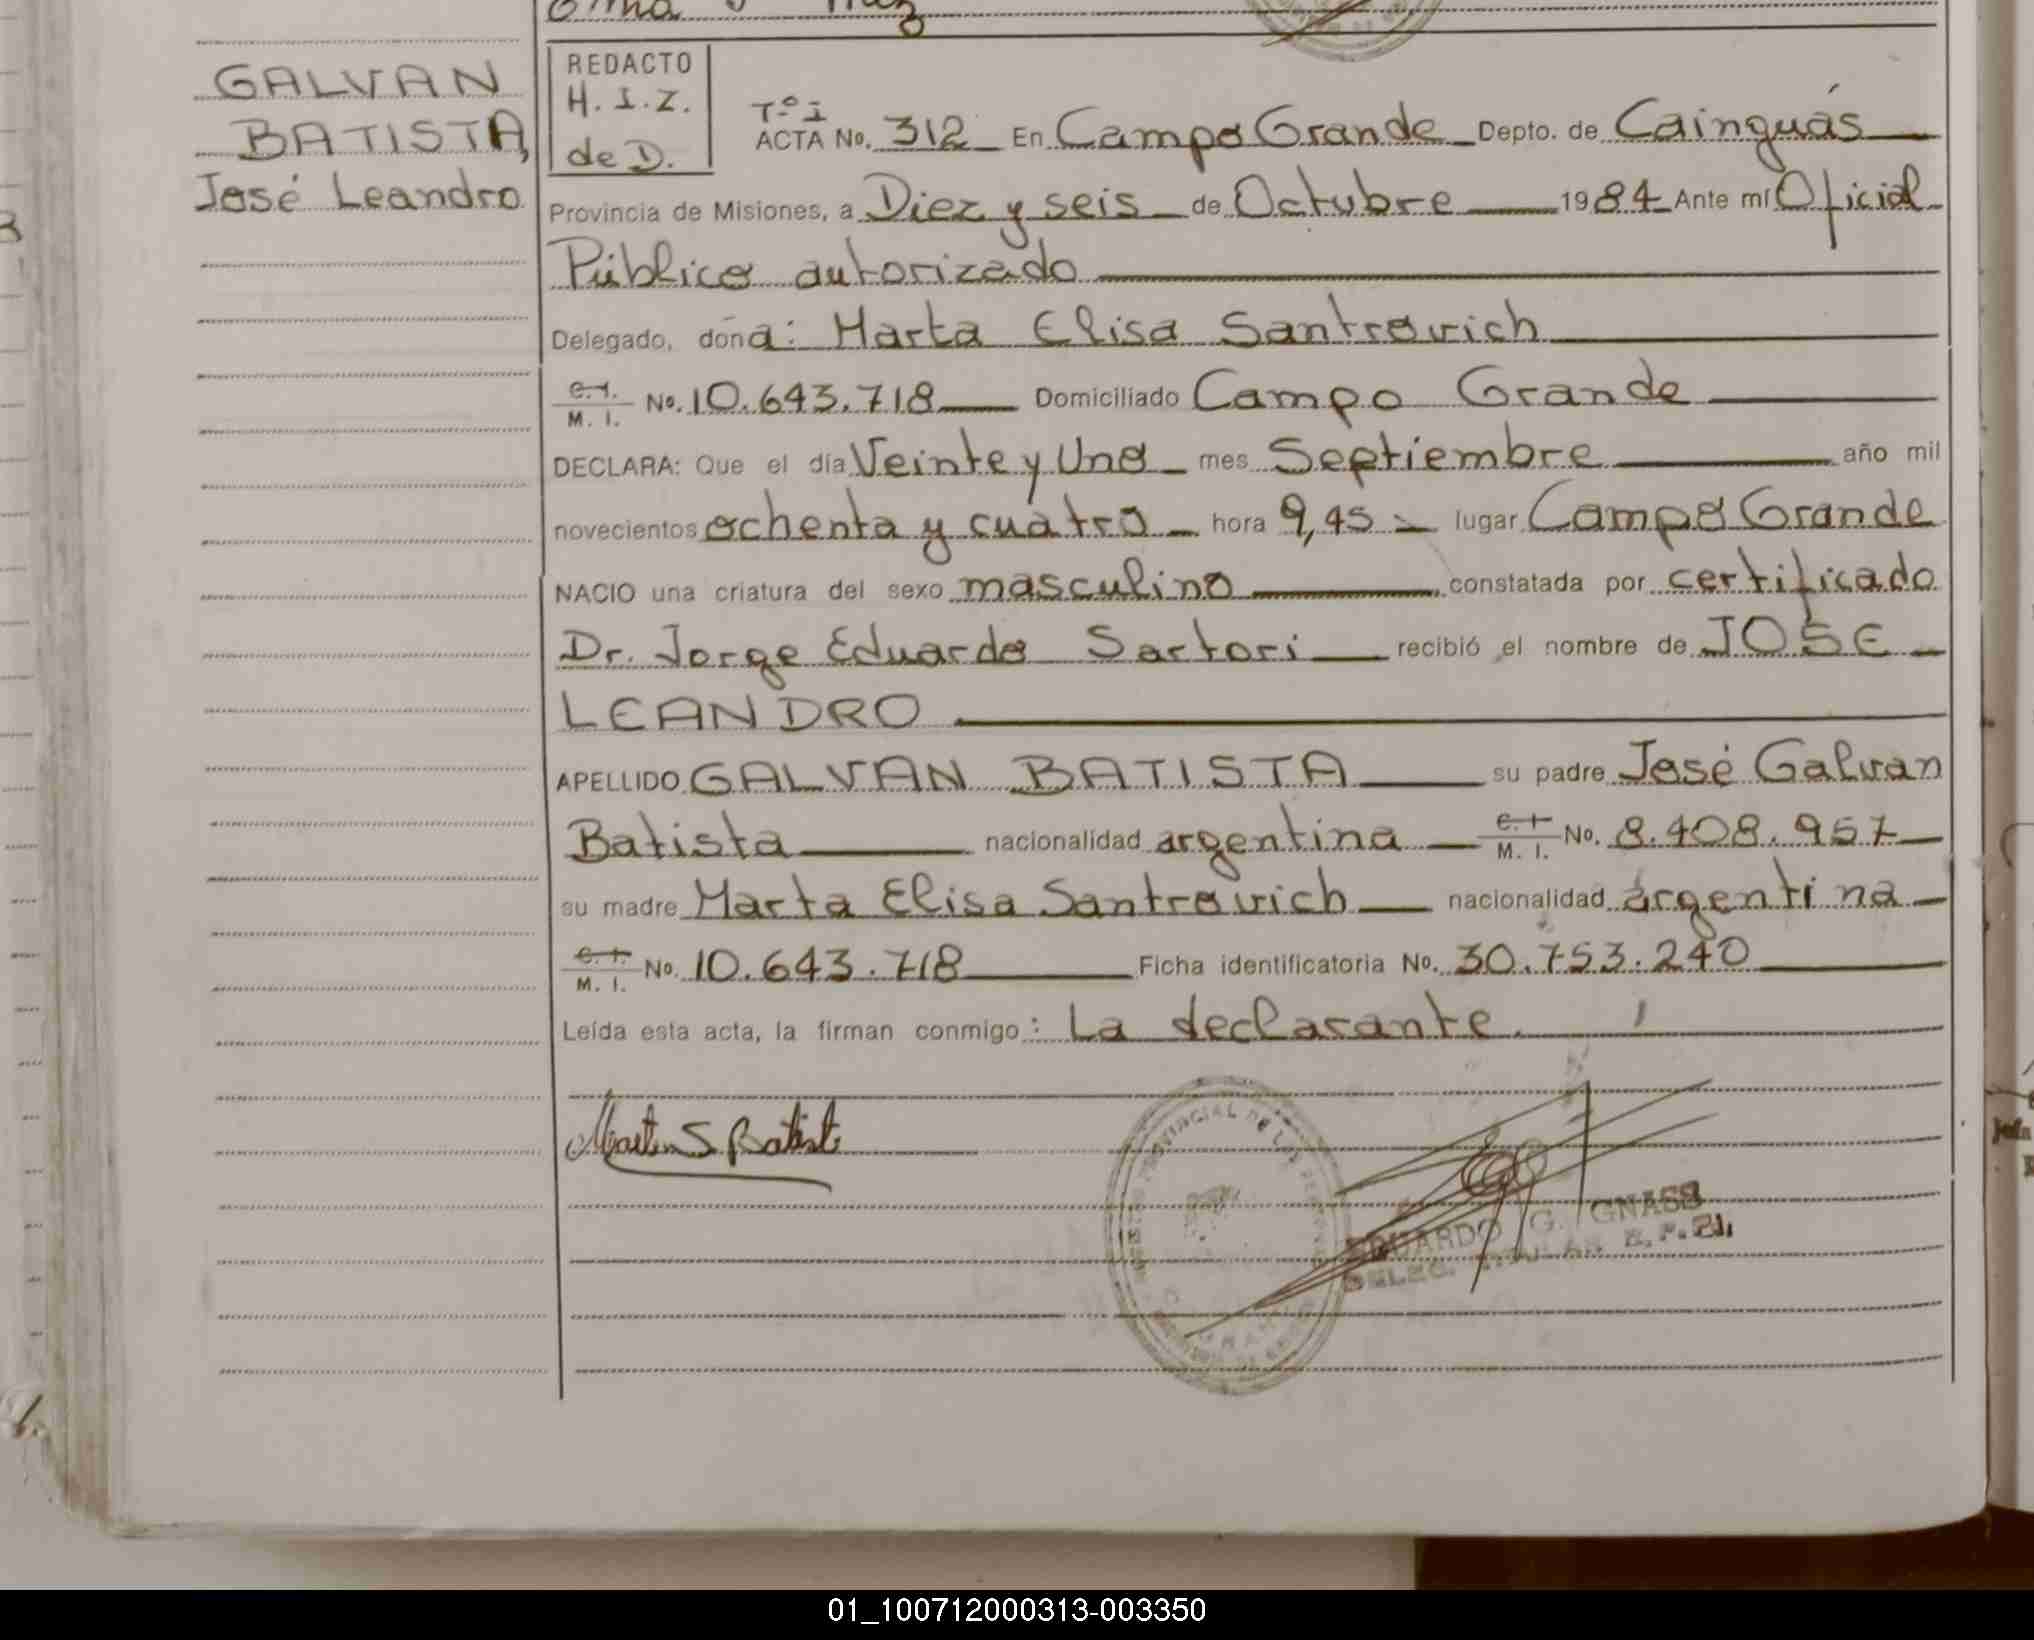 GALVAN
BATISTA,
José Leandro
REDACTO
H. I. Z.
de D.
Tº I
ACTA No. 312 En Campo Grande Depto. de Cainguás
Provincia de Misiones, a Diez y seis de Octubre 1984 Ante mí Oficial
Público autorizado
Delegado, doña: Marta Elisa Santrovich
C.I. M. I. No. 10.643.718 Domiciliado Campo Grande
DECLARA: Que el día Veinte y Uno mes Septiembre año mil
novecientos ochenta y cuatro hora 9,45 lugar Campo Grande
NACIO una criatura del sexo masculino constatada por certificado
Dr. Jorge Eduardo Sartori recibió el nombre de JOSE
LEANDRO
APELLIDO GALVAN BATISTA su padre José Galvan
Batista nacionalidad argentina C.I. M. I. No. 8.408.957
su madre Marta Elisa Santrovich nacionalidad argentina
C.I. M. I. No. 10.643.718 Ficha identificatoria No. 30.753.240
Leída esta acta, la firman conmigo: La declarante.
EDUARDO G. GNASS
01_100712000313-003350